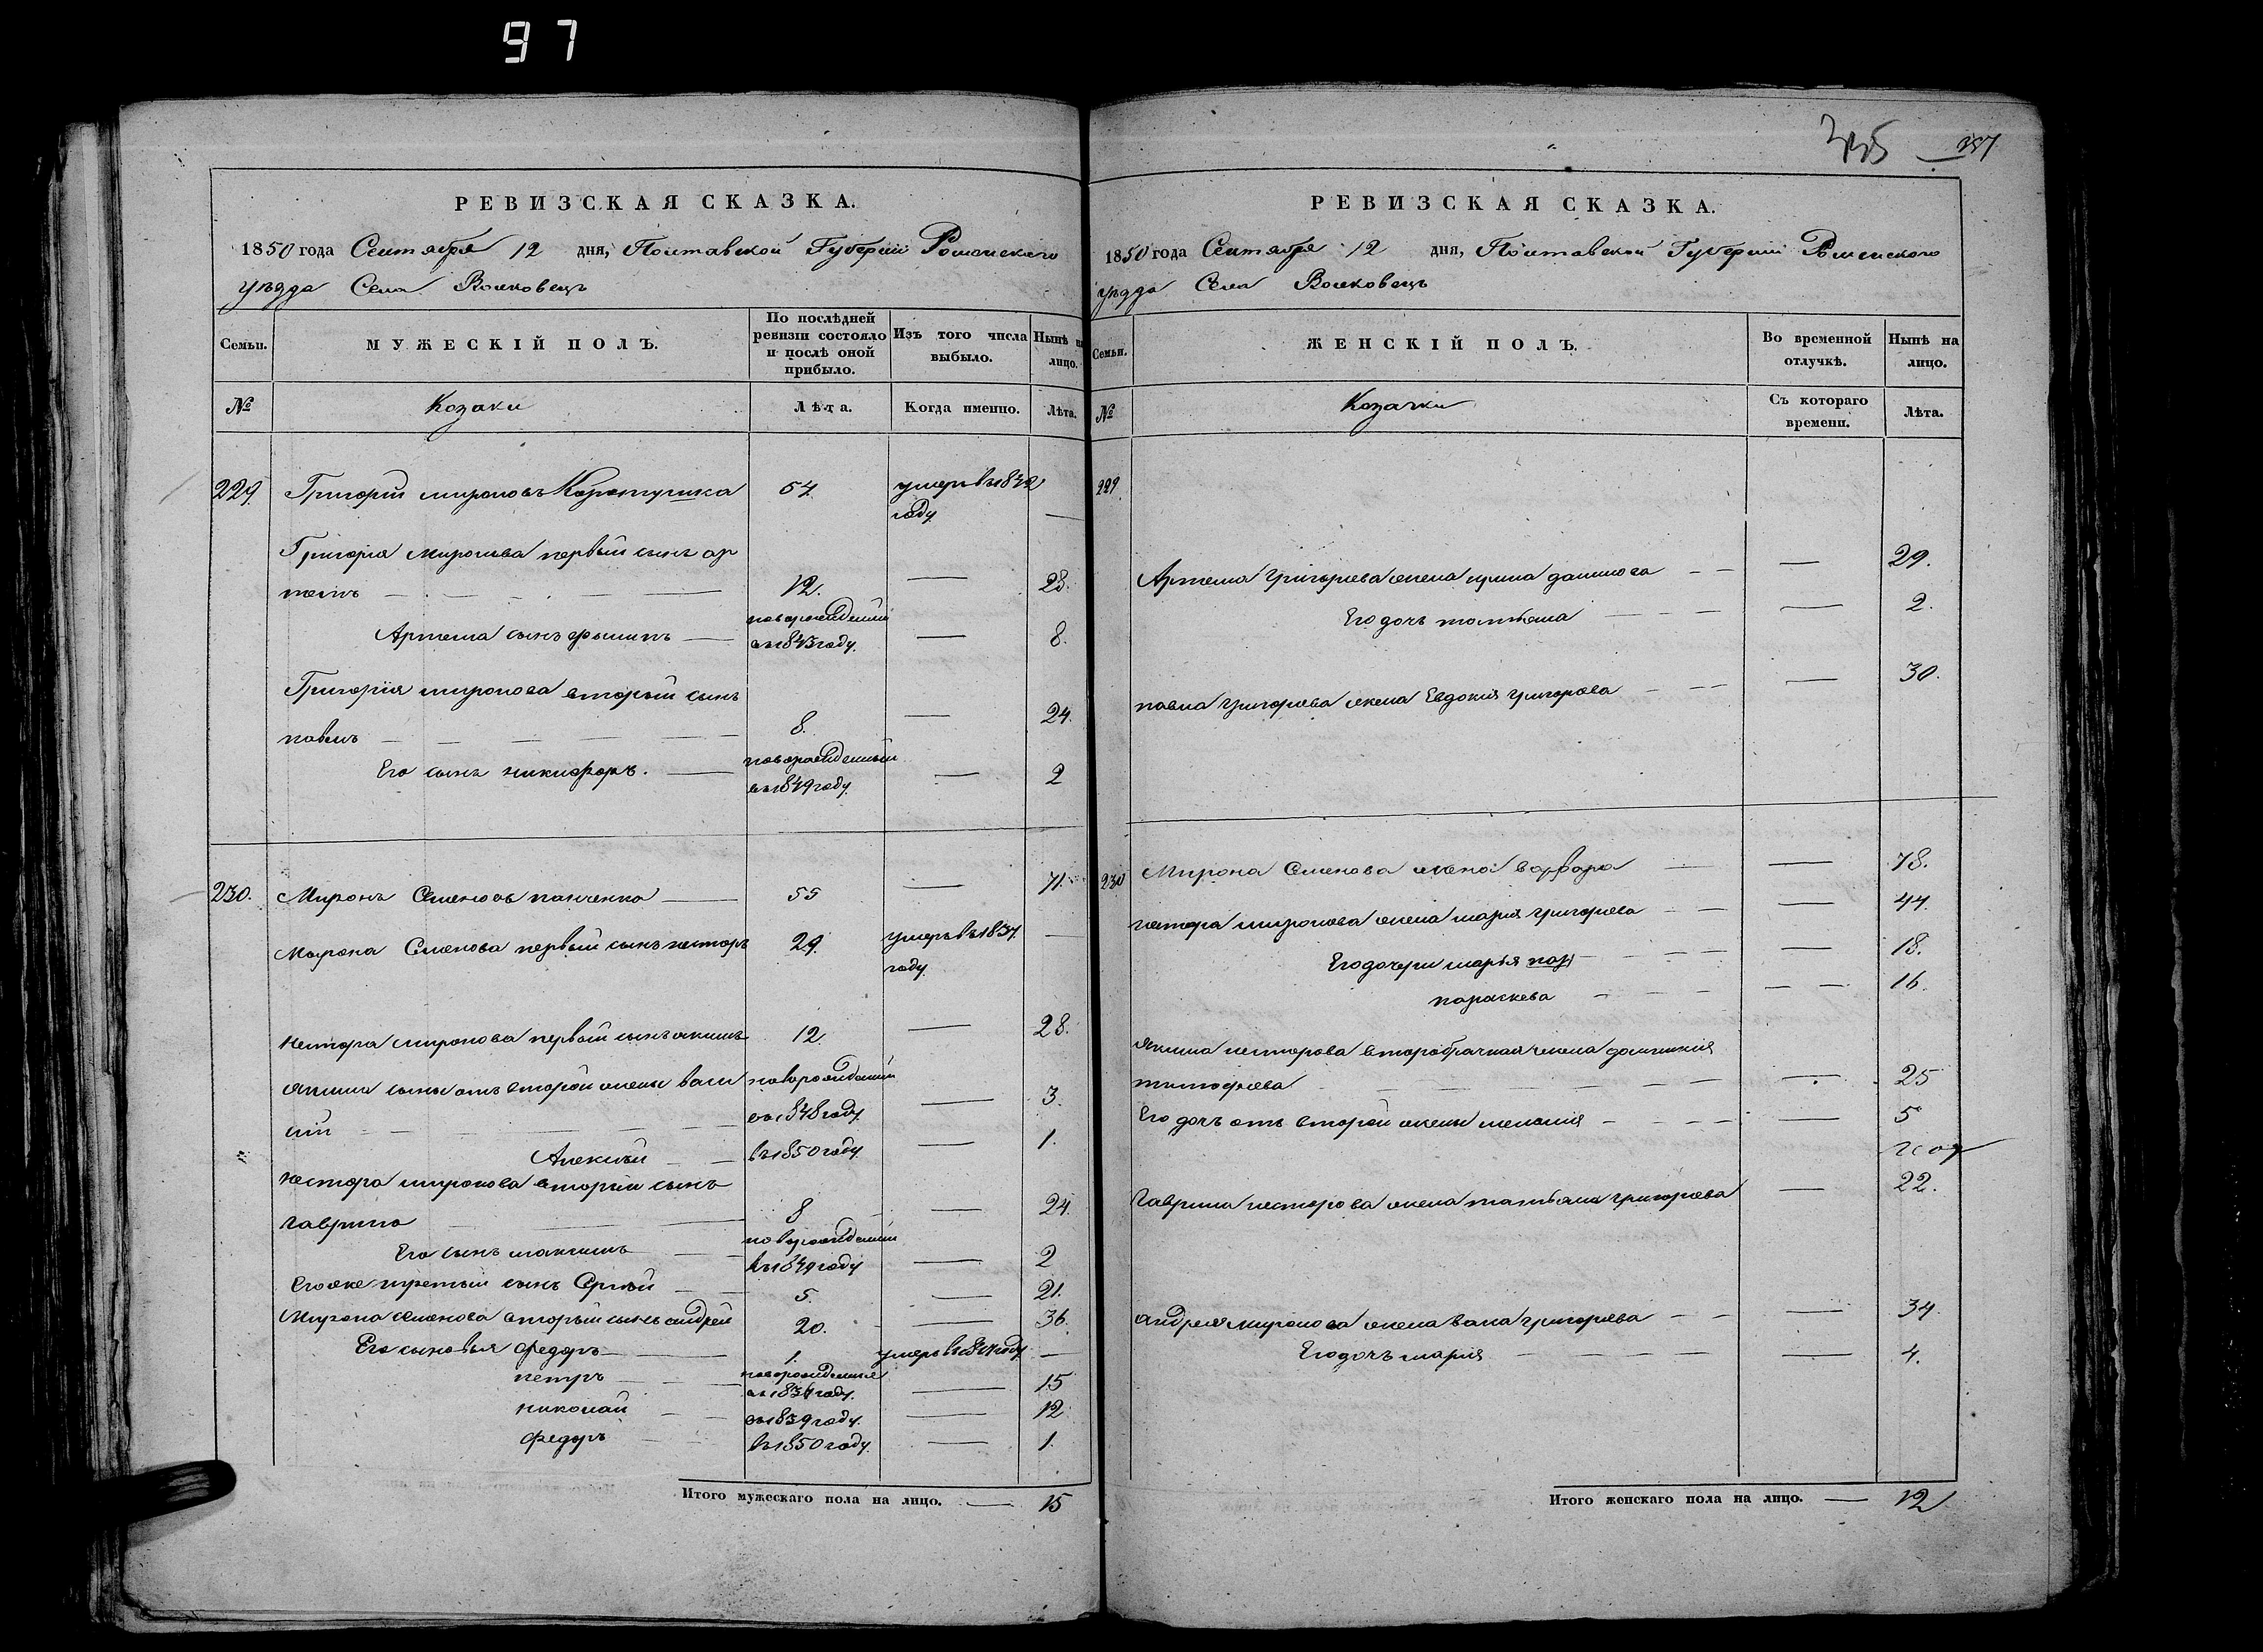 97
335
357
РЕВИЗСКАЯ СКАЗКА.
1850 года Сентября 12 дня, Полтавской Губернии Роменского
уезда Села Волковецъ
Семьи.
МУЖЕСКІЙ ПОЛЪ.
По послѣдней ревизіи состояло и послѣ оной прибыло.
Изъ того числа выбыло.
Нынѣ на лицо.
№
Козаки
Лѣта.
Когда именно.
Лѣта.
229. Григорій мироновъ 54. умеръ въ 1842 году —
Григорія Миронова первый сынъ ар
темъ — 12. — 28.
Артема сынъ новорожденный въ 1843 году — 8.
Григорія миронова второй сынъ
павелъ — 8. — 24.
Его сынъ никифоръ. — новорожденный въ 1849 году — 2
230. Миронъ Семеновъ панченко — 55 — 71.
Мирона Семенова первый сынъ несторъ 29. умеръ въ 1837 году —
Нестора миронова первый сынъ акимъ 12. — 28.
акима сыны отъ второй жены васи новорожденный
лій — въ 1848 году — 3.
Алексѣй — въ 1850 году — 1.
Нестора миронова второй сынъ
гаврило — 8 — 24.
Его сынъ максимъ — новорожденный въ 1849 году — 2
Его же третій сынъ Сергѣй — 5. — 21.
Мирона семенова второй сынъ андрей 20. — 36.
Его сыновья Федоръ — 1. умеръ году —
петръ — новорожденные въ 1836 году. — 15
николай — въ 1839 году. — 12
федоръ — въ 1850 году. — 1.
Итого мужескаго пола на лицо. — 15
РЕВИЗСКАЯ СКАЗКА.
1850 года Сентября 12 дня, Полтавской Губернии Роменского
уезда Села Волковецъ
Семьи.
ЖЕНСКІЙ ПОЛЪ.
Во временной отлучкѣ.
Нынѣ на лицо.
№
Козачки
Съ котораго времени.
Лѣта.
229
Артема Григорьева жена ирина данилова — — 29.
Его дочь татьяна — — 2.
павла григорьева жена Евдокія григорьева — — 30.
230 Мирона Семенова жена варвара — — 78.
нестора миронова жена марія григорьева — — 44.
Его дочери марья пар — — 18.
параскева — — 16.
якима несторова второбрачная жена домникія
тимофеева — — 25
Его дочь отъ второй жены меланія — — 5
Гаврила несторова жена татьяна григорьева — 22.
андрея миронова жена григорьева — — 34
Его дочь марія — — 4.
Итого женскаго пола на лицо. — 12